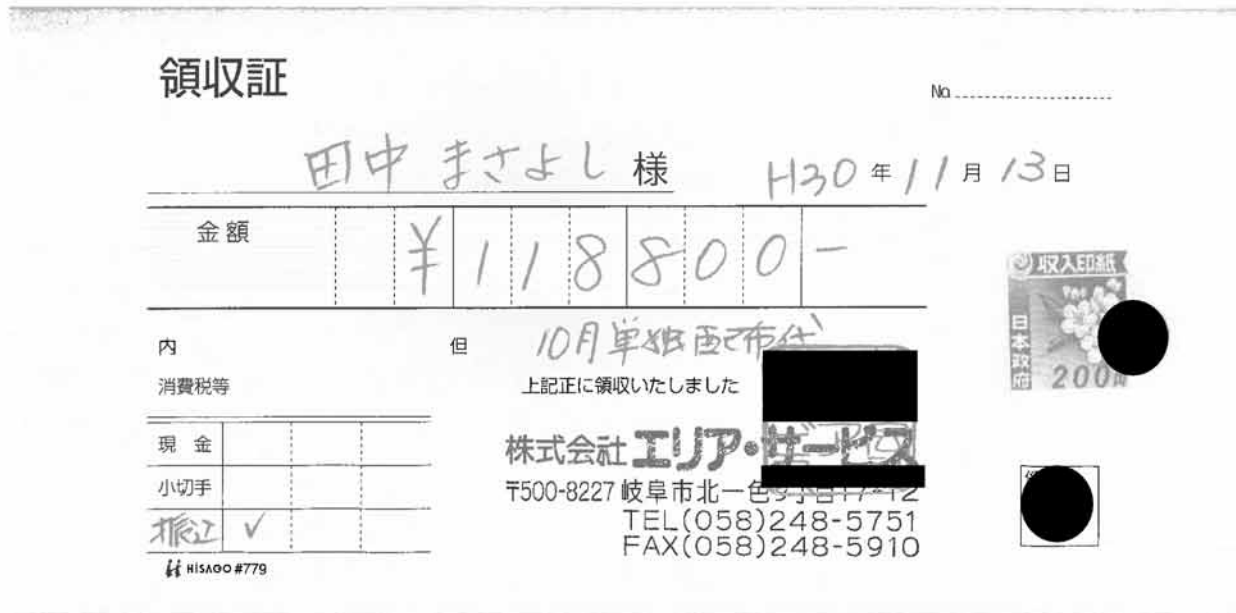 領収証
No.
田中 まさよし 様 H30年11月13日
金額 ¥118800-
内
但 10月単独配布代
消費税等
上記正に領収いたしました
現金
小切手
振込 ✓
株式会社エリア・サービス
〒500-8227 岐阜市北一色9丁目17-12
TEL(058)248-5751
FAX(058)248-5910
HISAGO #779
収入印紙
日本政府
200円